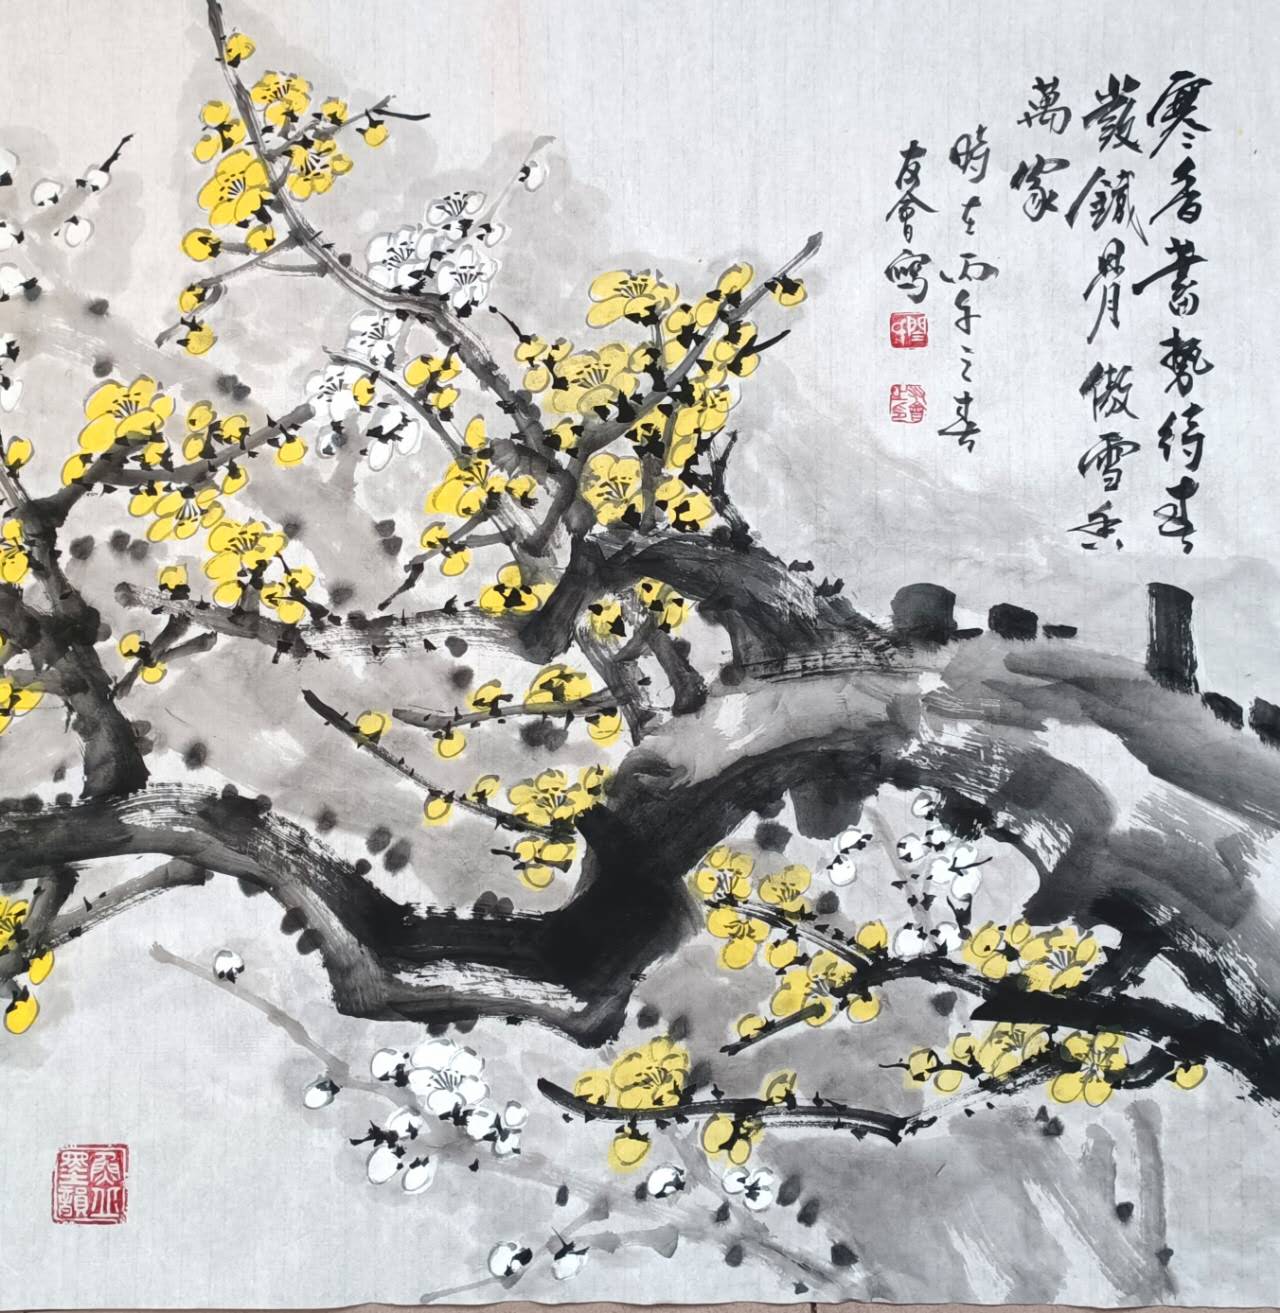 寒香蓄勢待春
發鐵骨傲雪香
萬家
時在丙午之春
友會寫
墨韻